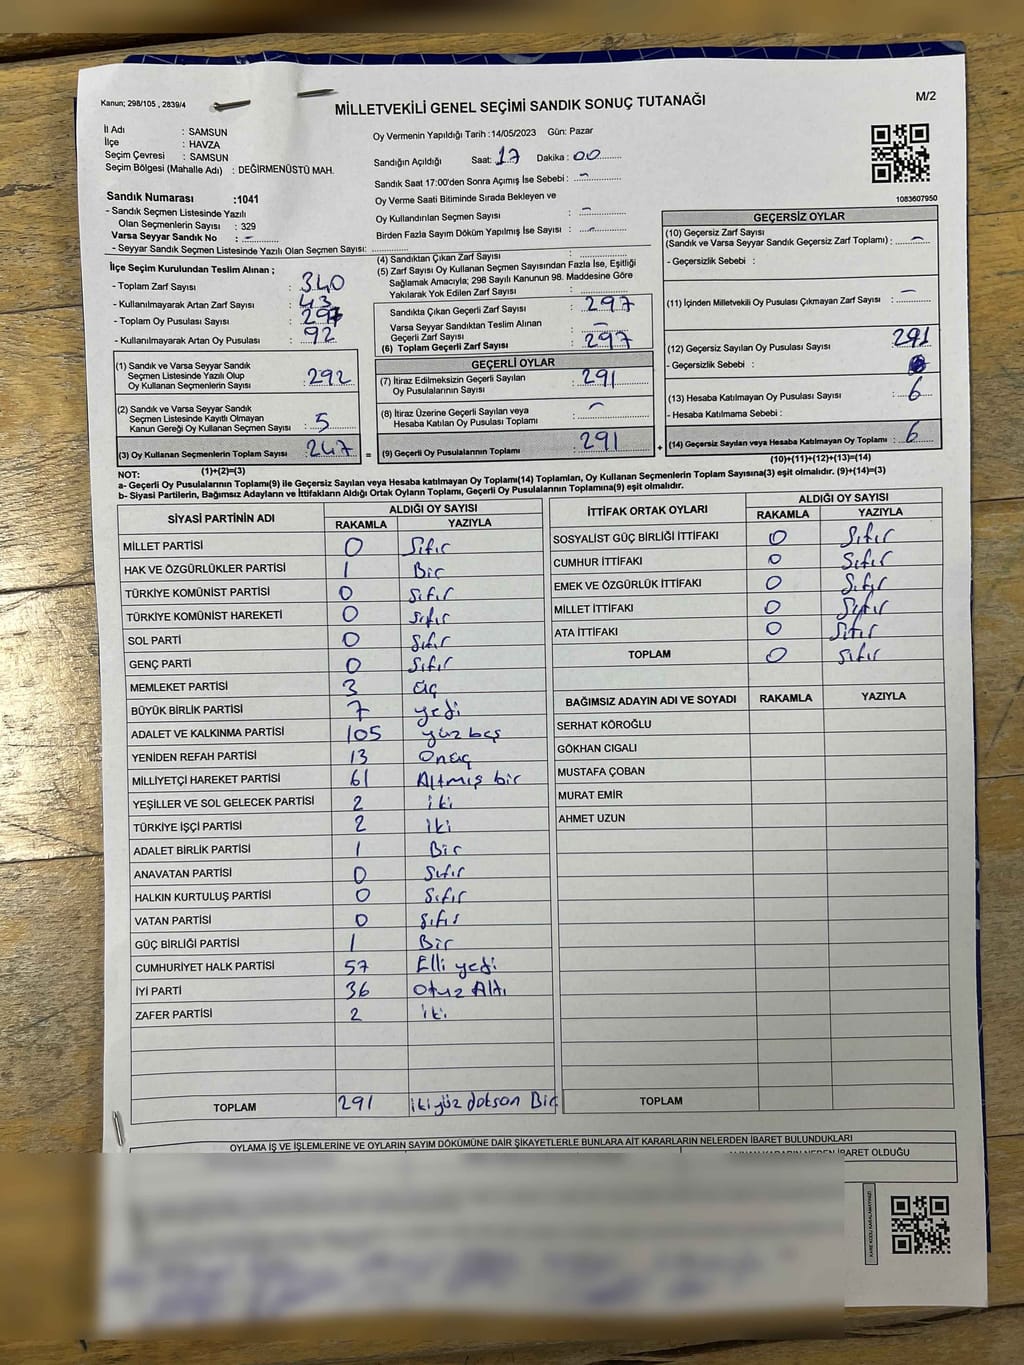 Kanun; 298/105 , 2839/4
MİLLETVEKİLİ GENEL SEÇİMİ SANDIK SONUÇ TUTANAĞI
M/2
İl Adı : SAMSUN
İlçe : HAVZA
Seçim Çevresi : SAMSUN
Seçim Bölgesi (Mahalle Adı) : DEĞİRMENÜSTÜ MAH.
Oy Vermenin Yapıldığı Tarih :14/05/2023 Gün: Pazar
Sandığın Açıldığı Saat: 17 Dakika : 00
Sandık Saat 17:00'den Sonra Açımış İse Sebebi : -
Oy Verme Saati Bitiminde Sırada Bekleyen ve
Oy Kullandırılan Seçmen Sayısı : -
Birden Fazla Sayım Döküm Yapılmış İse Sayısı : -
1083607950
Sandık Numarası :1041
- Sandık Seçmen Listesinde Yazılı
Olan Seçmenlerin Sayısı : 329
Varsa Seyyar Sandık No : -
- Seyyar Sandık Seçmen Listesinde Yazılı Olan Seçmen Sayısı:
İlçe Seçim Kurulundan Teslim Alınan ;
- Toplam Zarf Sayısı : 340
- Kullanılmayarak Artan Zarf Sayısı : 43
- Toplam Oy Pusulası Sayısı :
- Kullanılmayarak Artan Oy Pusulası : 92
(1) Sandık ve Varsa Seyyar Sandık
Seçmen Listesinde Yazılı Olup
Oy Kullanan Seçmenlerin Sayısı : 292
(2) Sandık ve Varsa Seyyar Sandık
Seçmen Listesinde Kayıtlı Olmayan
Kanun Gereği Oy Kullanan Seçmen Sayısı : 5
(3) Oy Kullanan Seçmenlerin Toplam Sayısı : 247
(1)+(2)=(3)
(4) Sandıktan Çıkan Zarf Sayısı :
(5) Zarf Sayısı Oy Kullanan Seçmen Sayısından Fazla İse, Eşitliği
Sağlamak Amacıyla; 298 Sayılı Kanunun 98. Maddesine Göre
Yakılarak Yok Edilen Zarf Sayısı :
Sandıkta Çıkan Geçerli Zarf Sayısı : 297
Varsa Seyyar Sandıktan Teslim Alınan
Geçerli Zarf Sayısı : -
(6) Toplam Geçerli Zarf Sayısı : 297
GEÇERLİ OYLAR
(7) İtiraz Edilmeksizin Geçerli Sayılan
Oy Pusulalarının Sayısı : 291
(8) İtiraz Üzerine Geçerli Sayılan veya
Hesaba Katılan Oy Pusulası Toplamı : -
= (9) Geçerli Oy Pusulalarının Toplamı : 291 +
GEÇERSİZ OYLAR
(10) Geçersiz Zarf Sayısı
(Sandık ve Varsa Seyyar Sandık Geçersiz Zarf Toplamı) : -
- Geçersizlik Sebebi :
(11) İçinden Milletvekili Oy Pusulası Çıkmayan Zarf Sayısı : -
(12) Geçersiz Sayılan Oy Pusulası Sayısı : 291
- Geçersizlik Sebebi :
(13) Hesaba Katılmayan Oy Pusulası Sayısı : 6
- Hesaba Katılmama Sebebi :
(14) Geçersiz Sayılan veya Hesaba Katılmayan Oy Toplamı : 6
(10)+(11)+(12)+(13)=(14)
NOT:
a- Geçerli Oy Pusulalarının Toplamı(9) ile Geçersiz Sayılan veya Hesaba katılmayan Oy Toplamı(14) Toplamları, Oy Kullanan Seçmenlerin Toplam Sayısına(3) eşit olmalıdır. (9)+(14)=(3)
b- Siyasi Partilerin, Bağımsız Adayların ve İttifakların Aldığı Ortak Oyların Toplamı, Geçerli Oy Pusulalarının Toplamına(9) eşit olmalıdır.
SİYASİ PARTİNİN ADI ALDIĞI OY SAYISI
RAKAMLA YAZIYLA
MİLLET PARTİSİ 0 Sıfır
HAK VE ÖZGÜRLÜKLER PARTİSİ 1 Bir
TÜRKİYE KOMÜNİST PARTİSİ 0 Sıfır
TÜRKİYE KOMÜNİST HAREKETİ 0 Sıfır
SOL PARTİ 0 Sıfır
GENÇ PARTİ 0 Sıfır
MEMLEKET PARTİSİ 3 üç
BÜYÜK BİRLİK PARTİSİ 7 yedi
ADALET VE KALKINMA PARTİSİ 105 yüz beş
YENİDEN REFAH PARTİSİ 13 Onüç
MİLLİYETÇİ HAREKET PARTİSİ 61 Altmış bir
YEŞİLLER VE SOL GELECEK PARTİSİ 2 iki
TÜRKİYE İŞÇİ PARTİSİ 2 iki
ADALET BİRLİK PARTİSİ 1 Bir
ANAVATAN PARTİSİ 0 Sıfır
HALKIN KURTULUŞ PARTİSİ 0 Sıfır
VATAN PARTİSİ 0 Sıfır
GÜÇ BİRLİĞİ PARTİSİ 1 Bir
CUMHURİYET HALK PARTİSİ 57 Elli yedi
İYİ PARTİ 36 Otuz Altı
ZAFER PARTİSİ 2 iki
TOPLAM 291 ikiyüz doksan Bir
İTTİFAK ORTAK OYLARI ALDIĞI OY SAYISI
RAKAMLA YAZIYLA
SOSYALİST GÜÇ BİRLİĞİ İTTİFAKI 0 Sıfır
CUMHUR İTTİFAKI 0 Sıfır
EMEK VE ÖZGÜRLÜK İTTİFAKI 0 Sıfır
MİLLET İTTİFAKI 0 Sıfır
ATA İTTİFAKI 0 Sıfır
TOPLAM 0 sıfır
BAĞIMSIZ ADAYIN ADI VE SOYADI RAKAMLA YAZIYLA
SERHAT KÖROĞLU
GÖKHAN CIGALI
MUSTAFA ÇOBAN
MURAT EMİR
AHMET UZUN
TOPLAM
OYLAMA İŞ VE İŞLEMLERİNE VE OYLARIN SAYIM DÖKÜMÜNE DAİR ŞİKAYETLERLE BUNLARA AİT KARARLARIN NELERDEN İBARET BULUNDUKLARI
İBARET OLDUĞU
KARE KODU KARALAMAYINIZ!